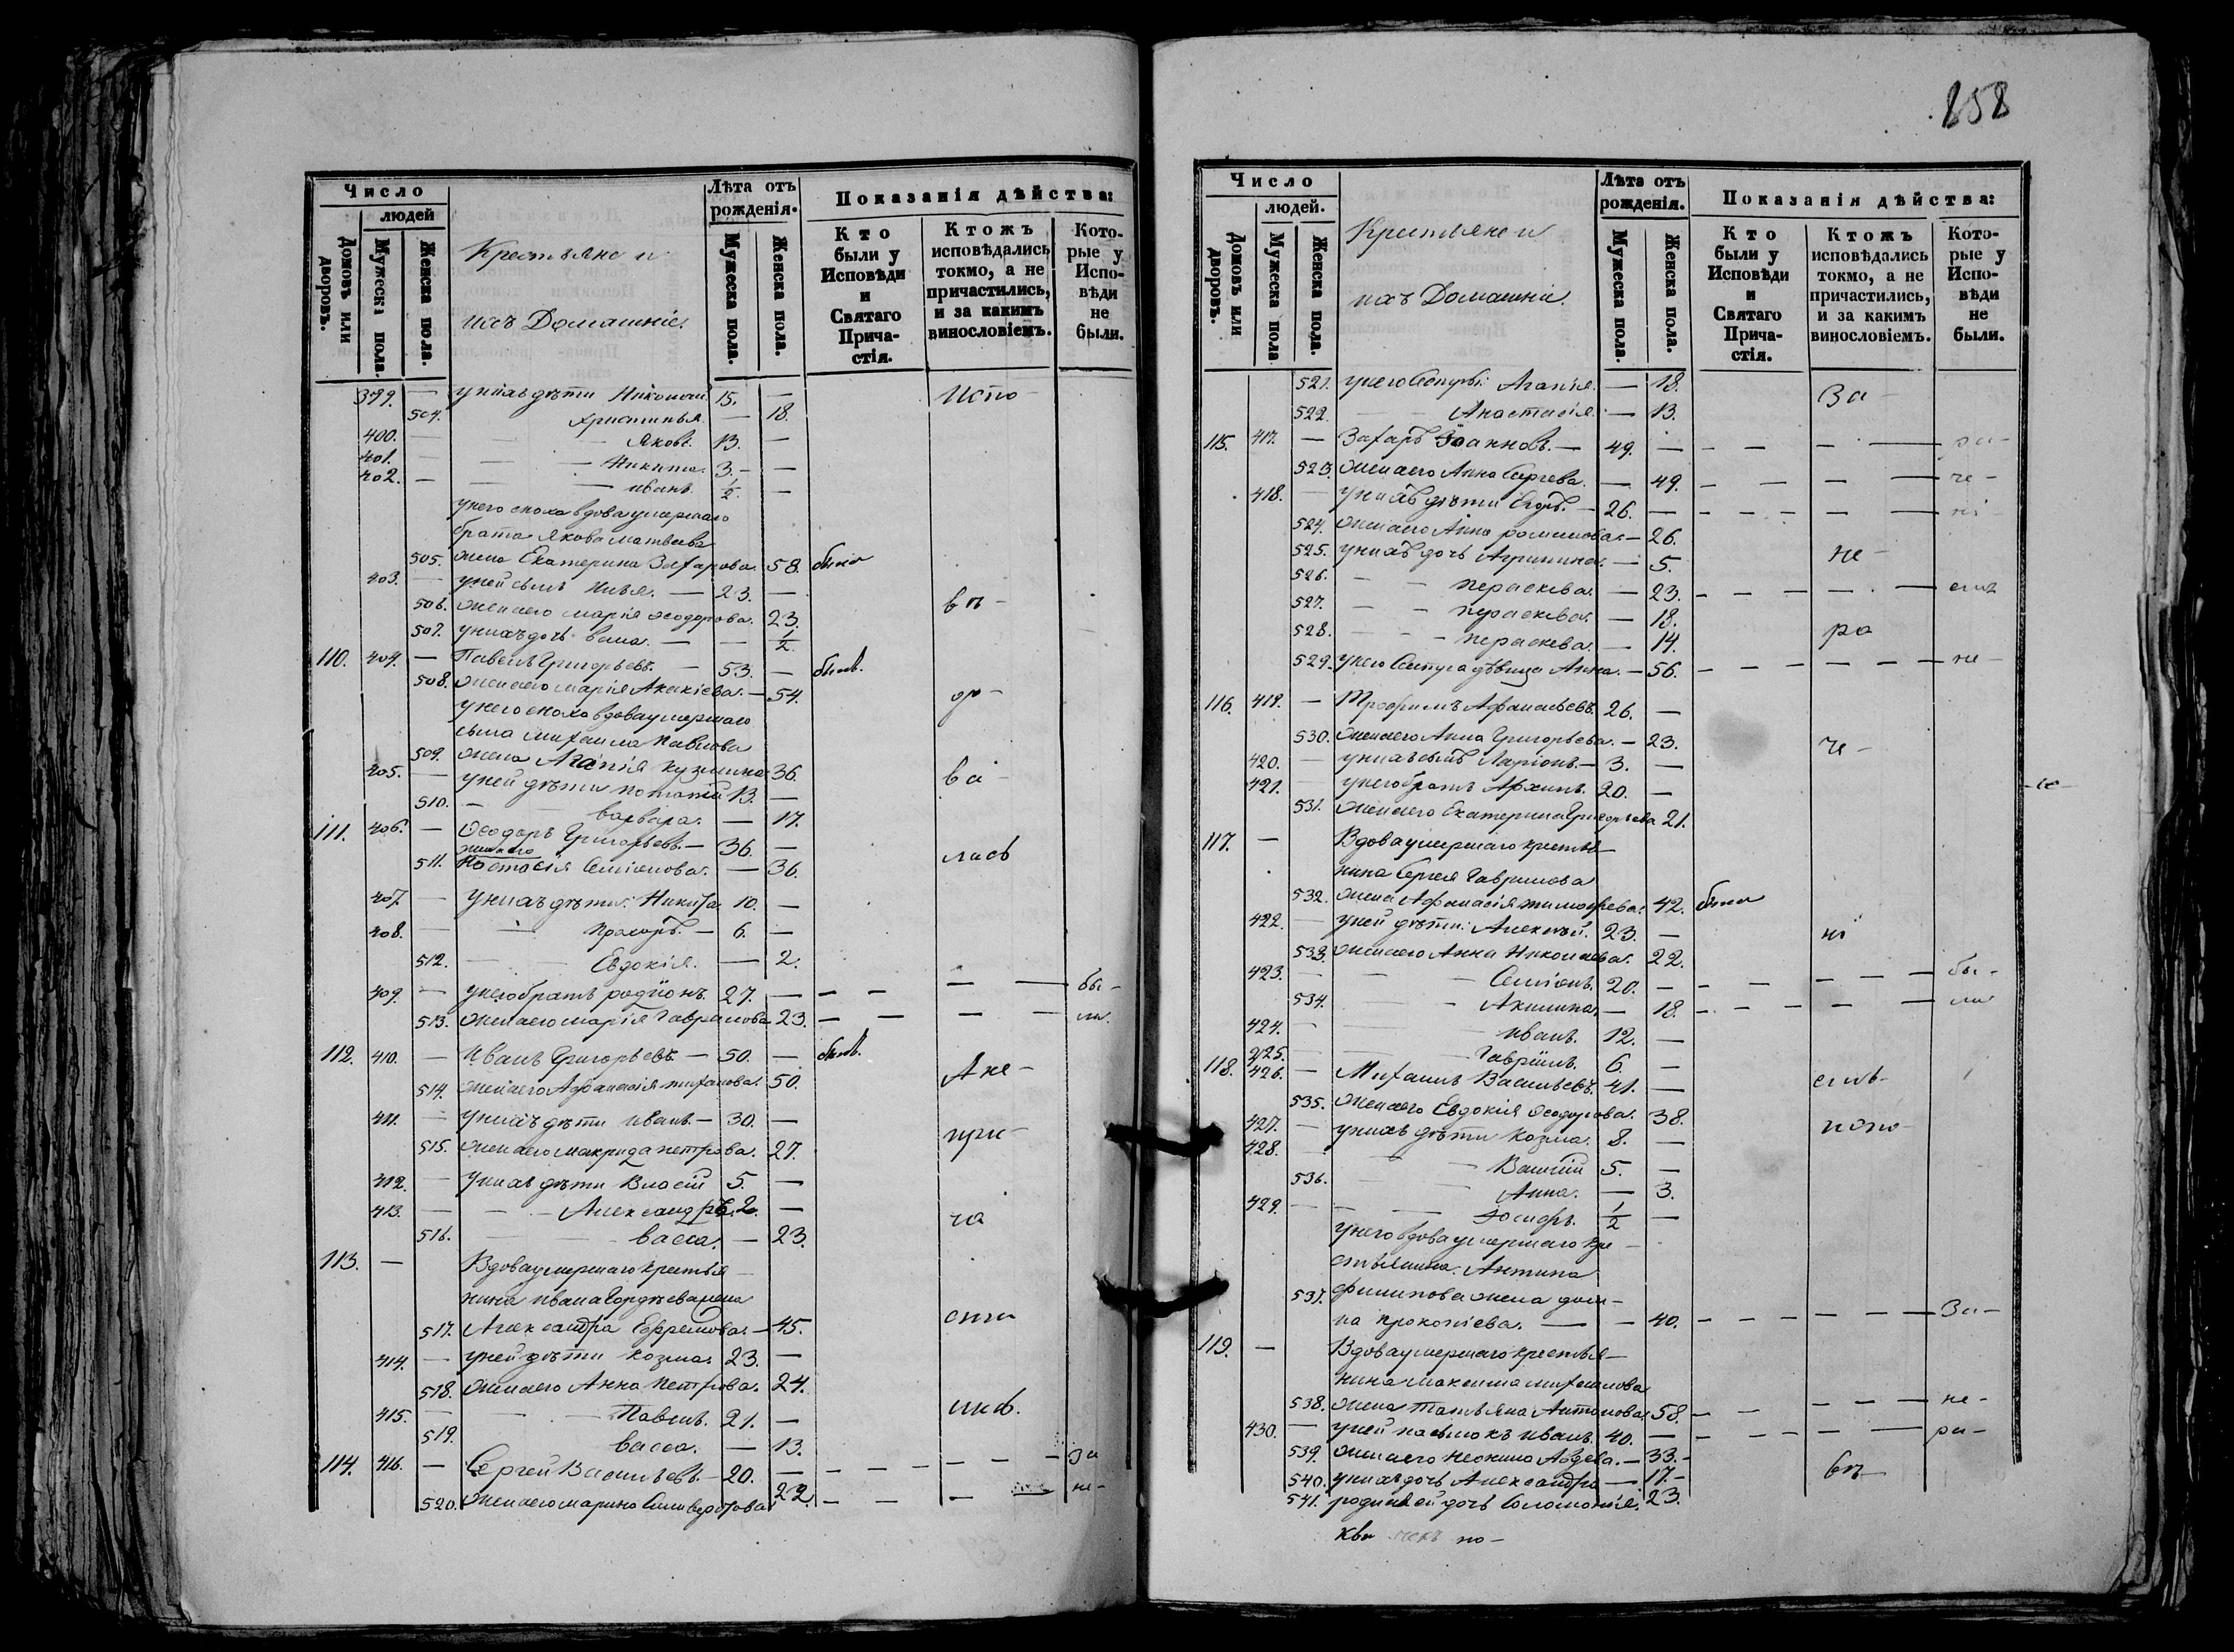 Число
людей
Домовъ или дворовъ.
Мужеска пола.
Женска пола.
Крестьяне и
ихъ Домашніе.
Лѣта отъ рожденія.
Мужеска пола.
Женска пола.
Показанія дѣйства:
Кто были у Исповѣди и Святаго Причастія.
Ктожъ исповѣдались токмо, а не причастились, и за какимъ винословіемъ.
Которые у Исповѣди не были.
399. — у нихъ дѣти Николай 15. — Испо-
504. Христинья — 18.
400. — — — Яковъ. 13. —
401. — — — Никита. 3. —
402. — — — иванъ. 1/2. —
у него сноха вдова умершаго
брата Якова Матвѣева
505. жена Екатерина Захарова. 58. была
403. — у ней сынъ Илья. — 23. —
506. жена его марія Ѳеодорова. 23. въ-
507. у нихъ дочь васа. — — 1/2.
110. 404. — Павелъ Григорьевъ. — 53. — былъ.
508. жена его марія Акакіева. — 54. др-
у него сноха вдова умершаго
сына михаила Павлова
509. жена Агапія кузмина 36.
405. — у ней дѣти потапій 13. — ва-
510. — варвара. — 17.
111. 406. — Ѳеодоръ Григорьевъ. — 36. —
жена его
511. Настасія Семіонова. — 36. лась
407. — у нихъ дѣти: Никита 10. —
408. — — Прохоръ. — 6. —
512. — — Евдокія. — 2.
409. — у него братъ родіонъ. 27. — — — — — бы-
513. жена его марія Гаврилова 23. — — — — ли.
112. 410. — Иванъ Григорьевъ. — 50. — былъ.
514. жена его Афанасія михайлова. 50. А не-
411. — у нихъ дѣти иванъ. — 30. —
515. жена его макрида петрова. 27. при-
412. — у нихъ дѣти Власій 5. —
413. — — — Александръ. 2. —
516. — — васса. — 23. ча
113. — Вдова умершаго крестья-
нина ивана Гордѣева жена
517. Александра Ефремова. — 45. сти
414. — у ней дѣти козма. 23. —
518. жена его Анна Петрова. 24.
415. — — — Павелъ. 21. — лись.
519. васса. — 13.
114. 416. — Сергей Васильевъ — 20. — — — — — — за
520. жена его марина 22. — — — — не-
858
Число
людей.
Домовъ или дворовъ.
Мужеска пола
Женска пола.
Крестьяне и
ихъ Домашніе.
Лѣта отъ рожденія.
Мужеска пола.
Женска пола.
Показанія дѣйства:
Кто были у Исповѣди и Святаго Причастія.
Ктожъ исповѣдались токмо, а не причастились, и за какимъ винословіемъ.
Которые у Исповѣди не были.
521. у него Сестры: Агапія. — 18. За-
522. — — Анастасія. — 13.
115. 417. — Захаръ Іоанновъ. — 49. — — — — — ра-
523. жена его Анна Сергеева. — 49. — — — — че-
418. — у нихъ дѣти Егоръ. — 26. — — — — — ні
524. жена его Анна романова — 26.
525. у нихъ дочь Агрипина. — 5. не-
526. — — пераскева. — 23. — — — — — емъ
527. — — пераскева. — 18.
528. — — — пераскева. — 14. ра
529. у него Сестра дѣвица Анна. — 56. — — — — — не-
116. 419. — Трофимъ Афанасьевъ. 26. —
530. жена его Анна Григорьева. — 23. че-
420. — у нихъ сынъ Ларіонъ. — 3. —
421. — у него братъ Архипъ. 20. —
531. жена его Екатерина Григорьева 21.
117. — Вдова умершаго крестья-
нина Сергея Гаврилова
532. жена Афанасія тимофеева. 42. была
422. — у ней дѣти: Алексѣй. 23. — ні
533. жена его Анна Николаева. 22.
423. — — — Семіонъ. 20. — — — — — бы-
534. — — Акилина — 18. — — — — ли
424. — — иванъ. 12. —
425. — — Гавріилъ. 6. —
118. 426. — Михаилъ Васильевъ. 41. — емъ-
535. жена его Евдокія Ѳеодорова. 38.
427. — у нихъ дѣти козма. 8. — попо-
428. — — Василій 5. —
536. — — Анна. — 3.
429. — — — Іосифъ. 1/2 —
у него вдова умершаго кре-
стьянина Антипа
537. филипова жена дом-
на прокопіева. — — 40. — — — — — За-
119. — Вдова умершаго крестья-
нина максима михаилова
538. жена татьяна Антонова 58. — — — — не-
430. — у ней пасынокъ иванъ. 40. — — — — — — ра-
539. жена его неонила Авдѣева. — 33. —
540. у нихъ дочь Александра — 17. — въ
541. дочь Соломонія. 23.